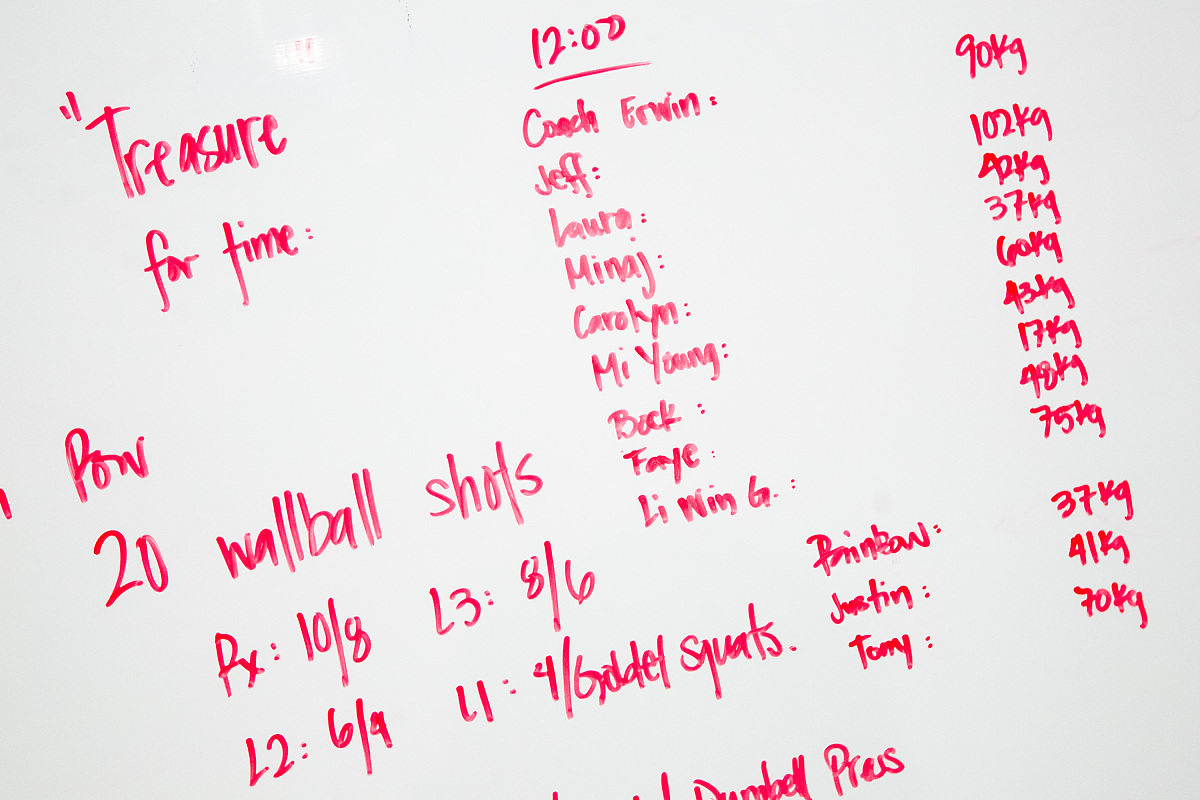 "Treasure
for time:
Row
20 wallball shots
Rx: 10/8 L3: 8/6
L2: 6/4 L1: 4/Goblet squats.
Dumbell Press
12:00
Coach Erwin: 90kg
Jeff: 102kg
Laura: 42kg
Minaj: 37kg
Carolyn: 60kg
Mi Young: 43kg
Beck: 17kg
Faye: 48kg
Li Win G.: 75kg
Rainbow: 37kg
Justin: 41kg
Tomy: 70kg